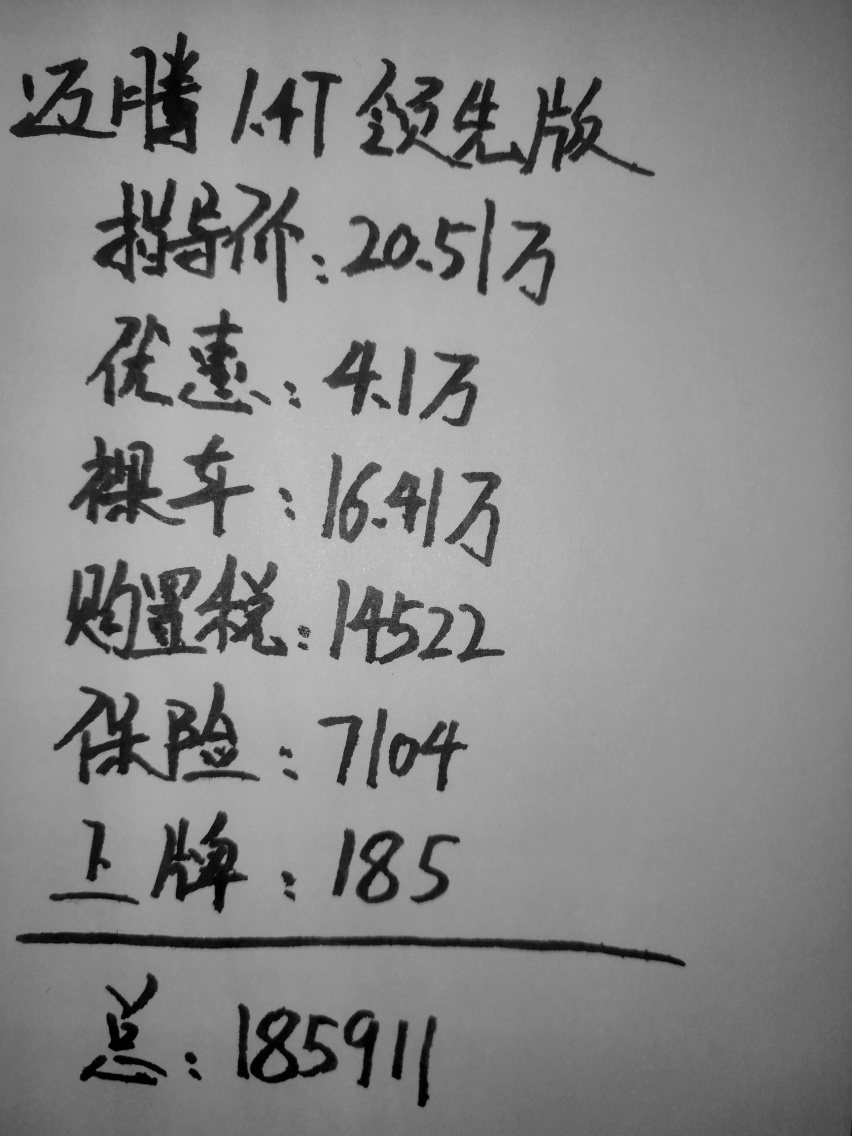 迈腾 1.4T 领先版
指导价：20.51万
优惠：4.1万
裸车：16.41万
购置税：14522
保险：7104
上牌：185
总：185911